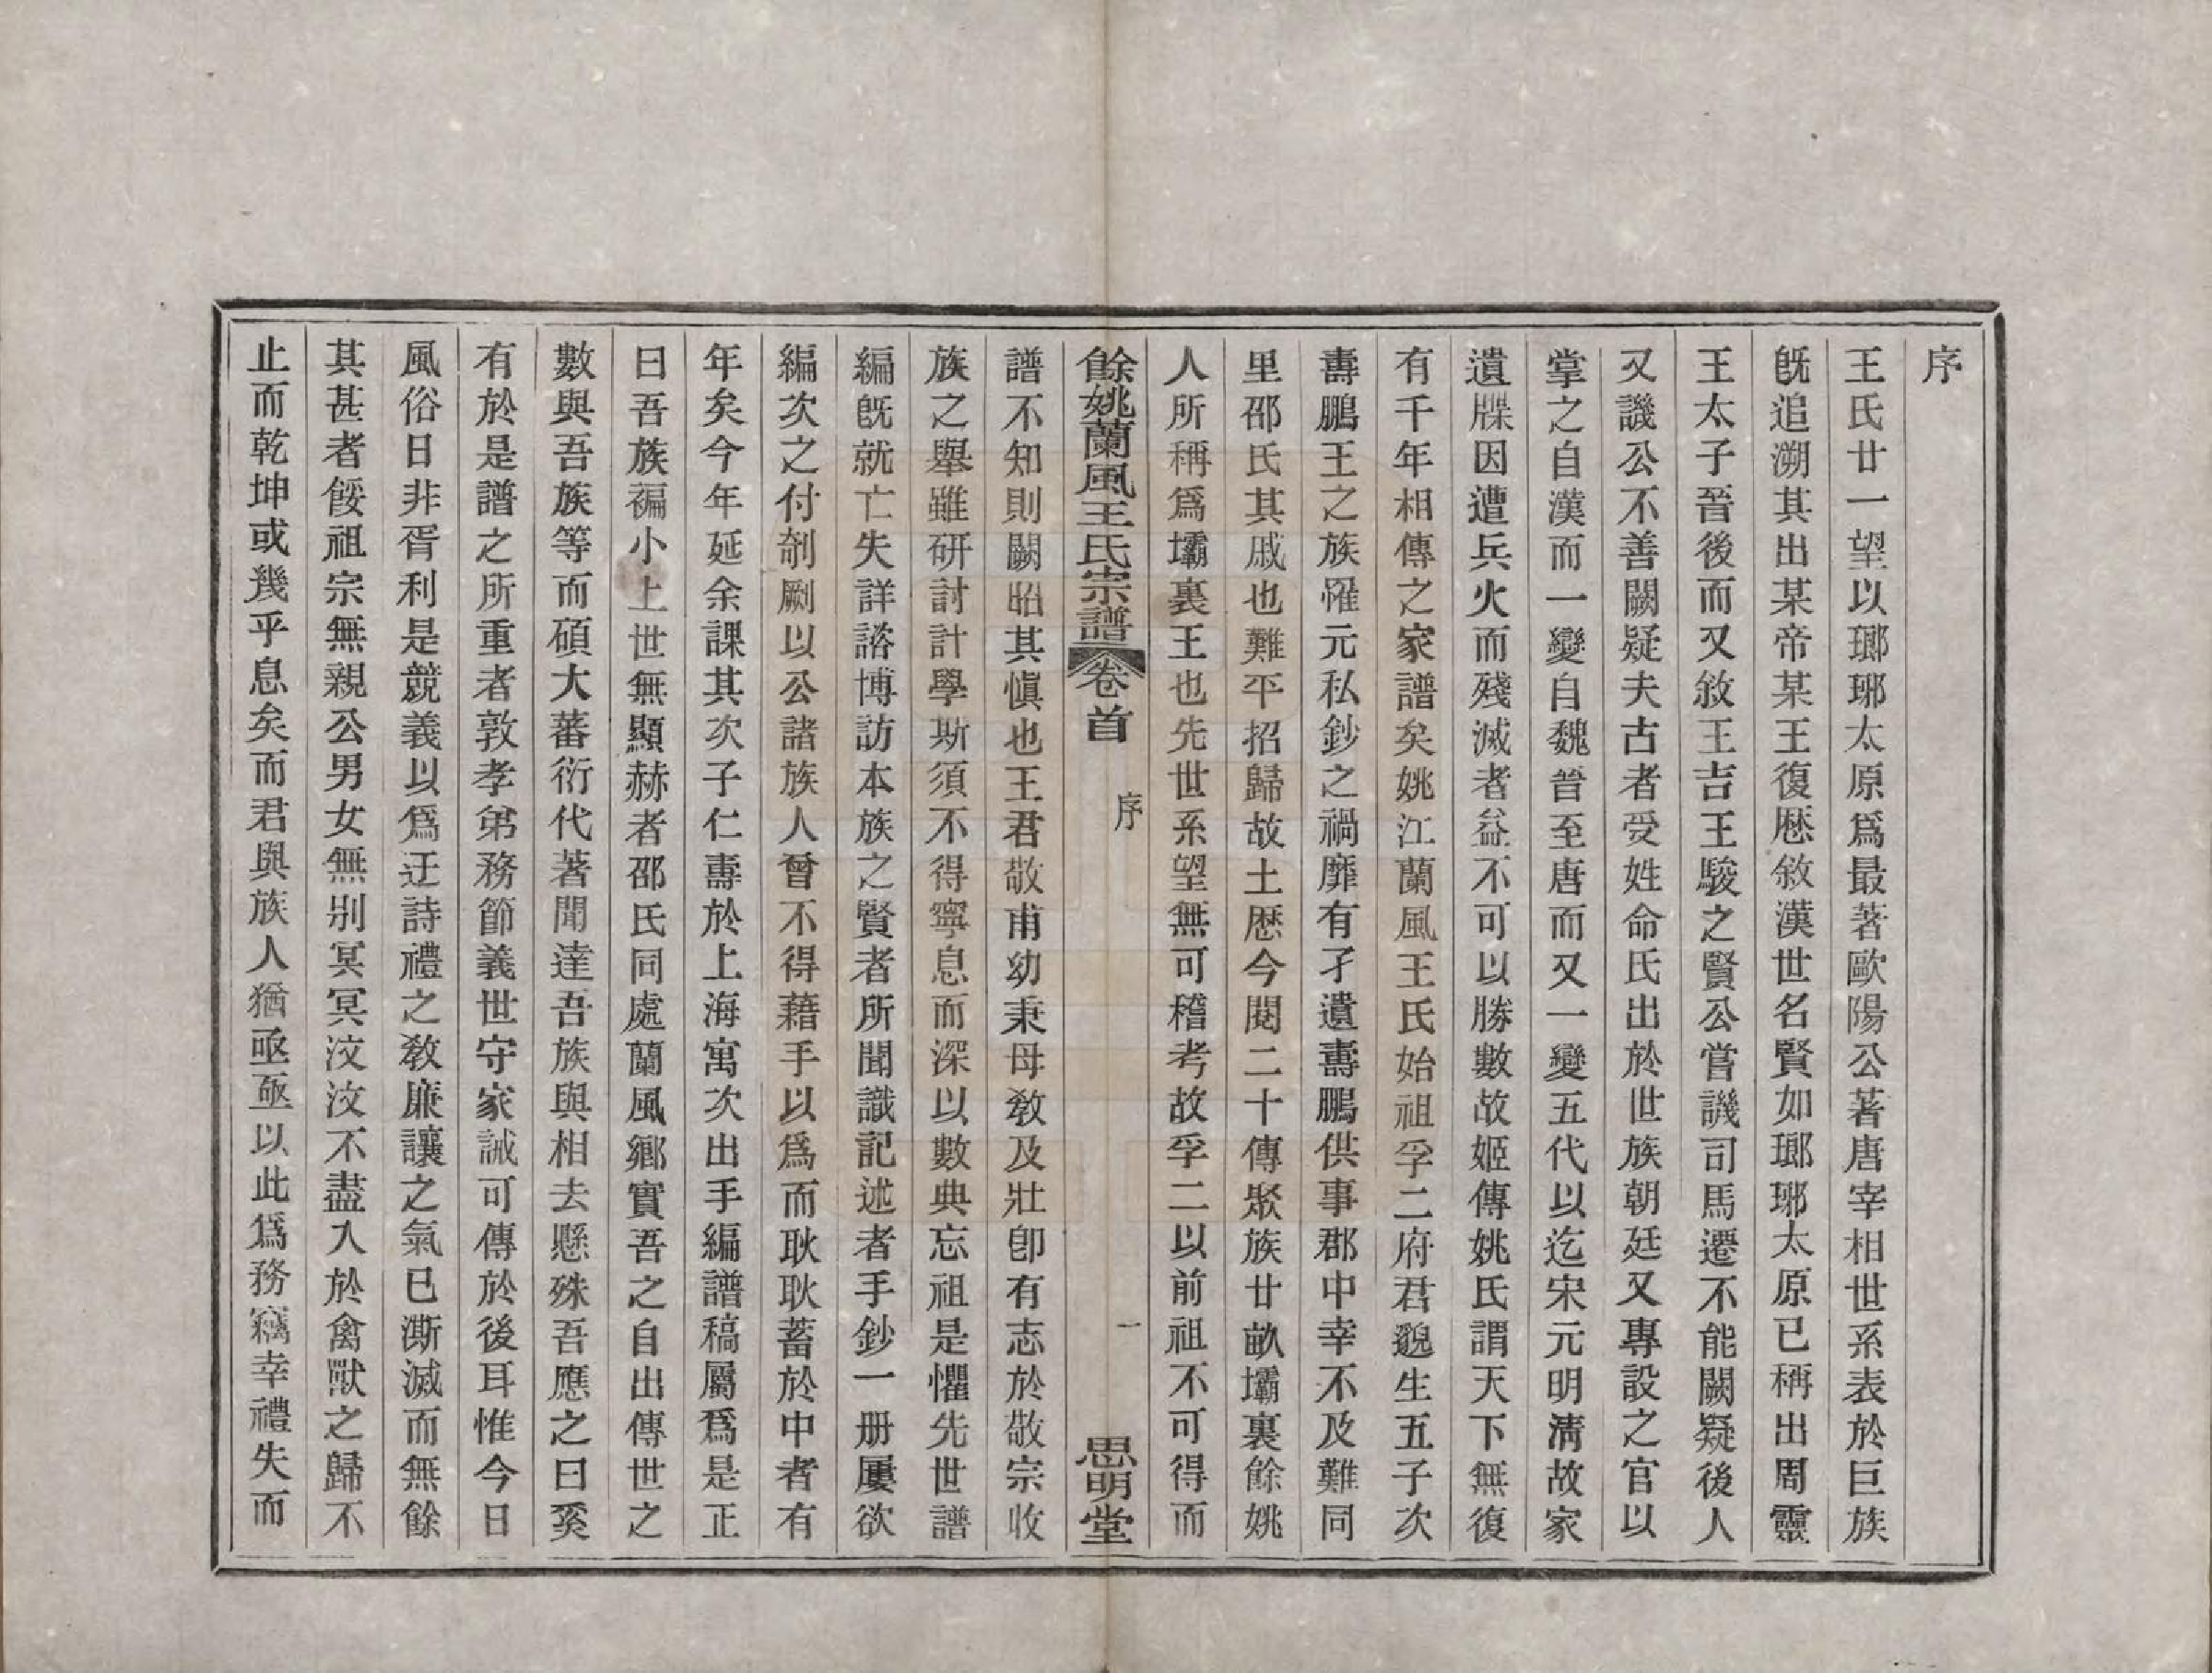 序
王氏廿一望以瑯琊太原爲最著歐陽公著唐宰相世系表於巨族
旣追溯其出某帝某王復歷敘漢世名賢如瑯琊太原已稱出周靈
王太子晉後而又敘王吉王駿之賢公嘗譏司馬遷不能闕疑後人
又譏公不善闕疑夫古者受姓命氏出於世族朝廷又專設之官以
掌之自漢而一變自魏晉至唐而又一變五代以迄宋元明淸故家
遺牒因遭兵火而殘滅者益不可以勝數故姬傳姚氏謂天下無復
有千年相傳之家譜矣姚江蘭風王氏始祖孚二府君巍生五子次
壽鵬王之族罹元私鈔之禍靡有孑遺壽鵬供事郡中幸不及難同
里邵氏其戚也難平招歸故土歷今閱二十傳聚族廿畝壩裏餘姚
人所稱爲壩裏王也先世系望無可稽考故孚二以前祖不可得而
餘姚蘭風王氏宗譜 卷首 序 一 思明堂
譜不知則闕昭其愼也王君敬甫幼秉母敎及壯卽有志於敬宗收
族之舉雖研討計學斯須不得寧息而深以數典忘祖是懼先世譜
編旣就亡失詳諮博訪本族之賢者所聞識記述者手鈔一册屢欲
編次之付剞劂以公諸族人曾不得藉手以爲而耿耿蓄於中者有
年矣今年延余課其次子仁壽於上海寓次出手編譜稿屬爲是正
曰吾族褊小上世無顯赫者邵氏同處蘭風鄕實吾之自出傳世之
數與吾族等而碩大蕃衍代著聞達吾族與相去懸殊吾應之曰奚
有於是譜之所重者敦孝弟務節義世守家誡可傳於後耳惟今日
風俗日非胥利是競義以爲迂詩禮之敎廉讓之氣已澌滅而無餘
其甚者餒祖宗無親公男女無別冥冥汶汶不盡入於禽獸之歸不
止而乾坤或幾乎息矣而君與族人猶亟亟以此爲務竊幸禮失而